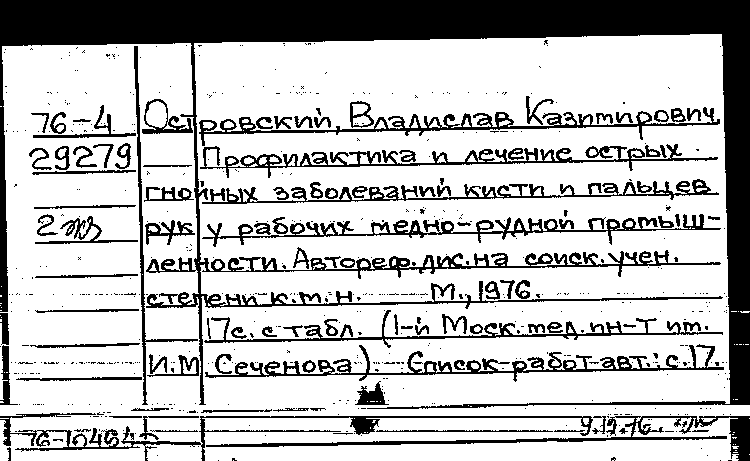 76-4 Островский, Владислав Казимирович
29279 Профилактика и лечение острых
гнойных заболеваний кисти и пальцев
2 экз рук у рабочих медно-рудной промыш-
ленности. Автореф. дис. на соиск. учен.
степени к.м.н. М., 1976.
17с. с табл. (1-й Моск. мед. ин-т им.
И.М. Сеченова). Список работ авт.: с. 17.
76-10464